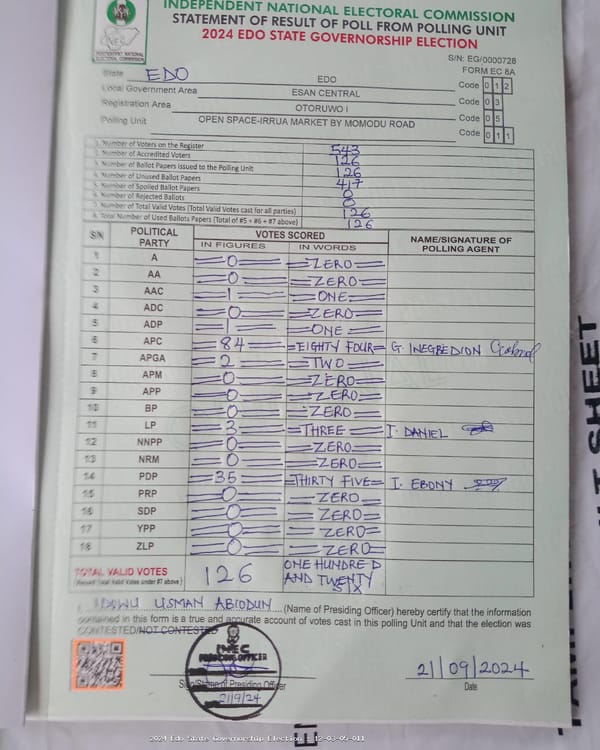 INDEPENDENT NATIONAL ELECTORAL COMMISSION
STATEMENT OF RESULT OF POLL FROM POLLING UNIT
2024 EDO STATE GOVERNORSHIP ELECTION
S/N: EG/0000728
FORM EC 8A
State EDO EDO
Local Government Area ESAN CENTRAL Code 0 1 2
Registration Area OTORUWO I Code 0 3
Polling Unit OPEN SPACE-IRRUA MARKET BY MOMODU ROAD Code 0 5
Code 0 1 1
1. Number of Voters on the Register 543
2. Number of Accredited Voters 126
3. Number of Ballot Papers Issued to the Polling Unit 126
4. Number of Unused Ballot Papers 417
5. Number of Spoiled Ballot Papers 0
6. Number of Rejected Ballots 0
7. Number of Total Valid Votes (Total Valid Votes cast for all parties) 126
8. Total Number of Used Ballots Papers (Total of #5 + #6 + #7 above) 126
S/N POLITICAL PARTY VOTES SCORED NAME/SIGNATURE OF POLLING AGENT
IN FIGURES IN WORDS
1 A 0 ZERO
2 AA 0 ZERO
3 AAC 1 ONE
4 ADC 0 ZERO
5 ADP 1 ONE
6 APC 84 EIGHTY FOUR G. INEGBEDION
7 APGA 2 TWO
8 APM 0 ZERO
9 APP 0 ZERO
10 BP 0 ZERO
11 LP 3 THREE I. DANIEL
12 NNPP 0 ZERO
13 NRM 0 ZERO
14 PDP 35 THIRTY FIVE I. EBONY
15 PRP 0 ZERO
16 SDP 0 ZERO
17 YPP 0 ZERO
18 ZLP 0 ZERO
TOTAL VALID VOTES 126 ONE HUNDRED AND TWENTY SIX
(Record Total Valid Votes under #7 above)
I, IDOWU USMAN ABIODUN (Name of Presiding Officer) hereby certify that the information
contained in this form is a true and accurate account of votes cast in this polling Unit and that the election was
CONTESTED/NOT CONTESTED
INEC
PRESIDING OFFICER
21/9/24
Sign/Stamp of Presiding Officer
21/09/2024
Date
SHEET
2024 Edo State Governorship Election - 12-03-05-011